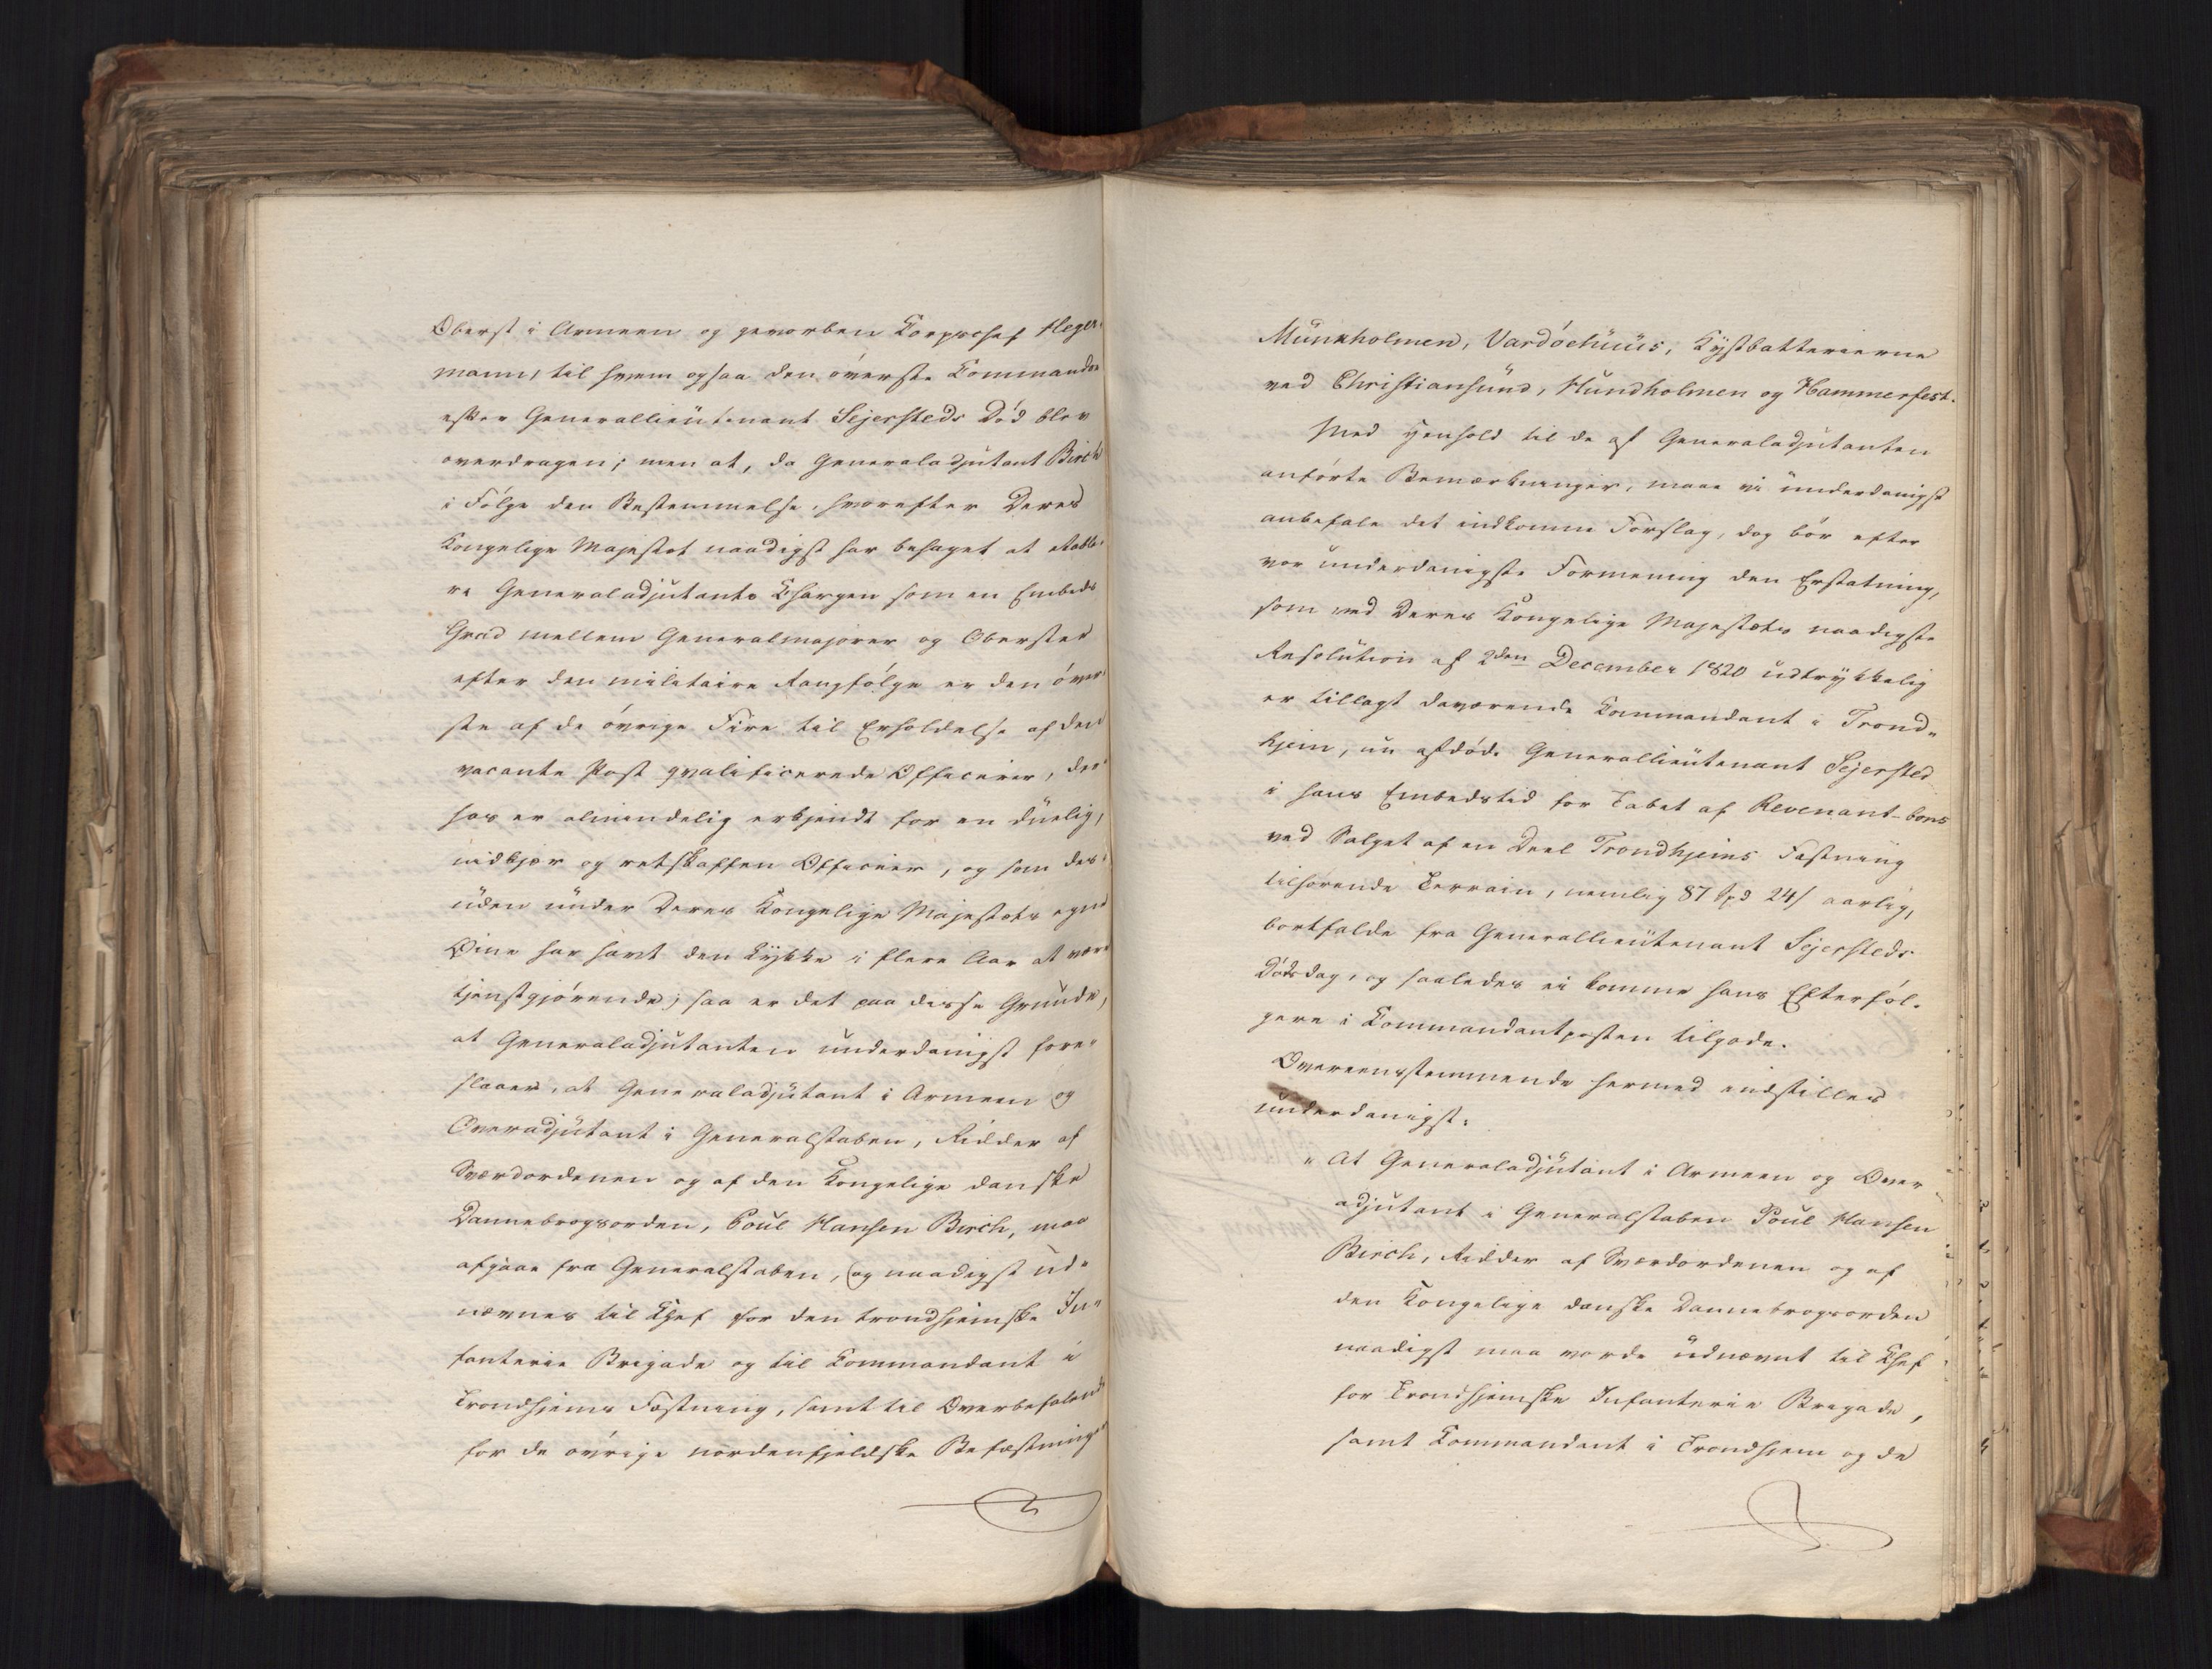 Oberst i Armeen og geworben Korpschef Heger-
mann, til hvem ogsaa den överste Kommando
efter Generallieutenant Sejersteds Död blev
overdragen; men at, da Generaladjutant Birch
i Fölge den Bestemmelse, hvorefter Deres
Kongelige Majestet naadigst har behaget at etable-
re Generaladjutants Chargen som en Embeds
Grad mellem Generalmajorer og Oberster
efter den militaire Rangfölge er den över-
ste af de övrige Fire til Erholdelse af den
vacante Post qvalificerede Officerer, der-
hos er almindelig erkjendt for en duelig,
nidkjær og retskaffen Officier, og som des-
uden under Deres Kongelige Majestets egne
Öine har havt den Lykke i flere Aar at være
tjenstgjörende; saa er det paa disse Grunde,
at Generaladjutanten underdanigst fore-
slaaer, at Generaladjutant i Armeen og
Overadjutant i Generalstaben, Ridder af
Sværdordenen og af den Kongelige danske
Dannebrogsorden, Poul Hansen Birch, maa
afgaae fra Generalstaben, og naadigst ud-
nævnes til Chef for den trondhjemske In-
fanterie Brigade og til Kommandant i
Trondhjems Fæstning, samt til Överbefalende
for de övrige nordenfjeldske Befæstninger
Munkholmen, Vardöehuus, Kystbatterierne
ved Christiansund, Hundholmen og Hammerfest.
Med Henhold til de af Generaladjutanten
anförte Bemærkninger, maae vi underdanigst
anbefale det indkomne Forslag, dog bör efter
vor underdanigste Formening den Erstatning,
som ved Deres Kongelige Majestæts naadigste
Resolution af 2den December 1820 udtrykkelig
er tillagt daværende Kommandant i Trond-
hjem, nu afdöde Generallieutenant Sejersted
i hans Embedstid for Tabet af Revenant-bons
ved Salget af en Deel Trondhjems Fæstning
tilhörende Terrain, nemlig 87 Spd 24 s aarlig,
bortfalde fra Generallieutenant Sejersteds
Dödsdag, og saaledes ei komme hans Efterföl-
gere i Kommandantposten tilgode.
Overeensstemmende hermed indstilles
underdanigst:
"At Generaladjutant i Armeen og Over-
adjutant i Generalstaben Poul Hansen
Birch, Ridder af Sværdordenen og af
den Kongelige danske Dannebrogsorden
naadigst maa vorde udnævnt til Chef
for Trondhjemske Infanterie Brigade,
samt Kommandant i Trondhjem og de